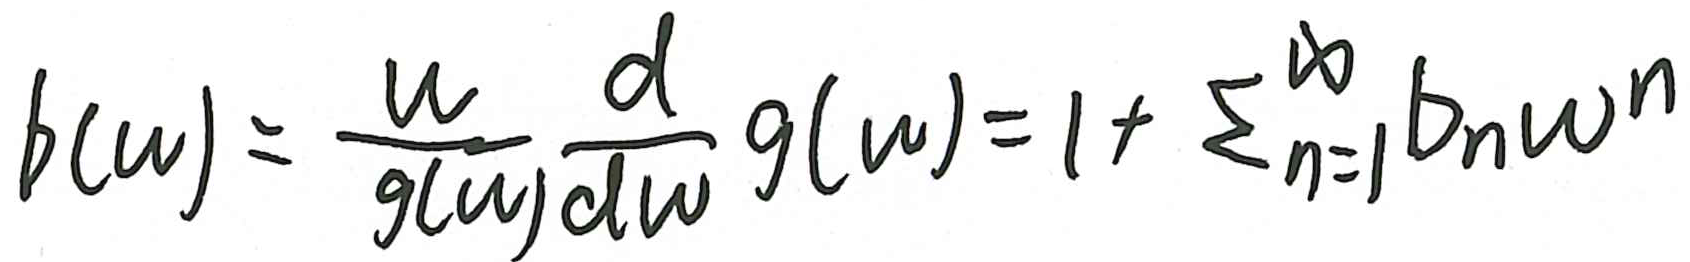 b(w) = \frac{w}{g(w)} \frac{d}{dw} g(w) = 1 + \sum_{n=1}^{\infty} b_n w^n